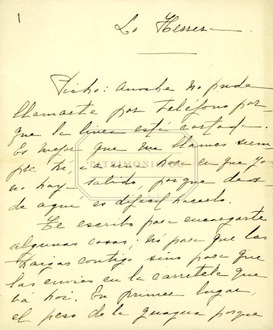 1
La Herrer
Picho: anoche no pude
llamarte por teléfono por-
que la línea está cortada.
Es mejor que me llames siem
pre tú, a la hora en que yo
no hay salido, porque des-
de aquí es difícil hacerlo.
Te escribo para encargarte
algunas cosas; no para que las
traigas contigo sino para que
las envíes en la carretela que
va hoy. En primer lugar,
el peso de la guagua porque